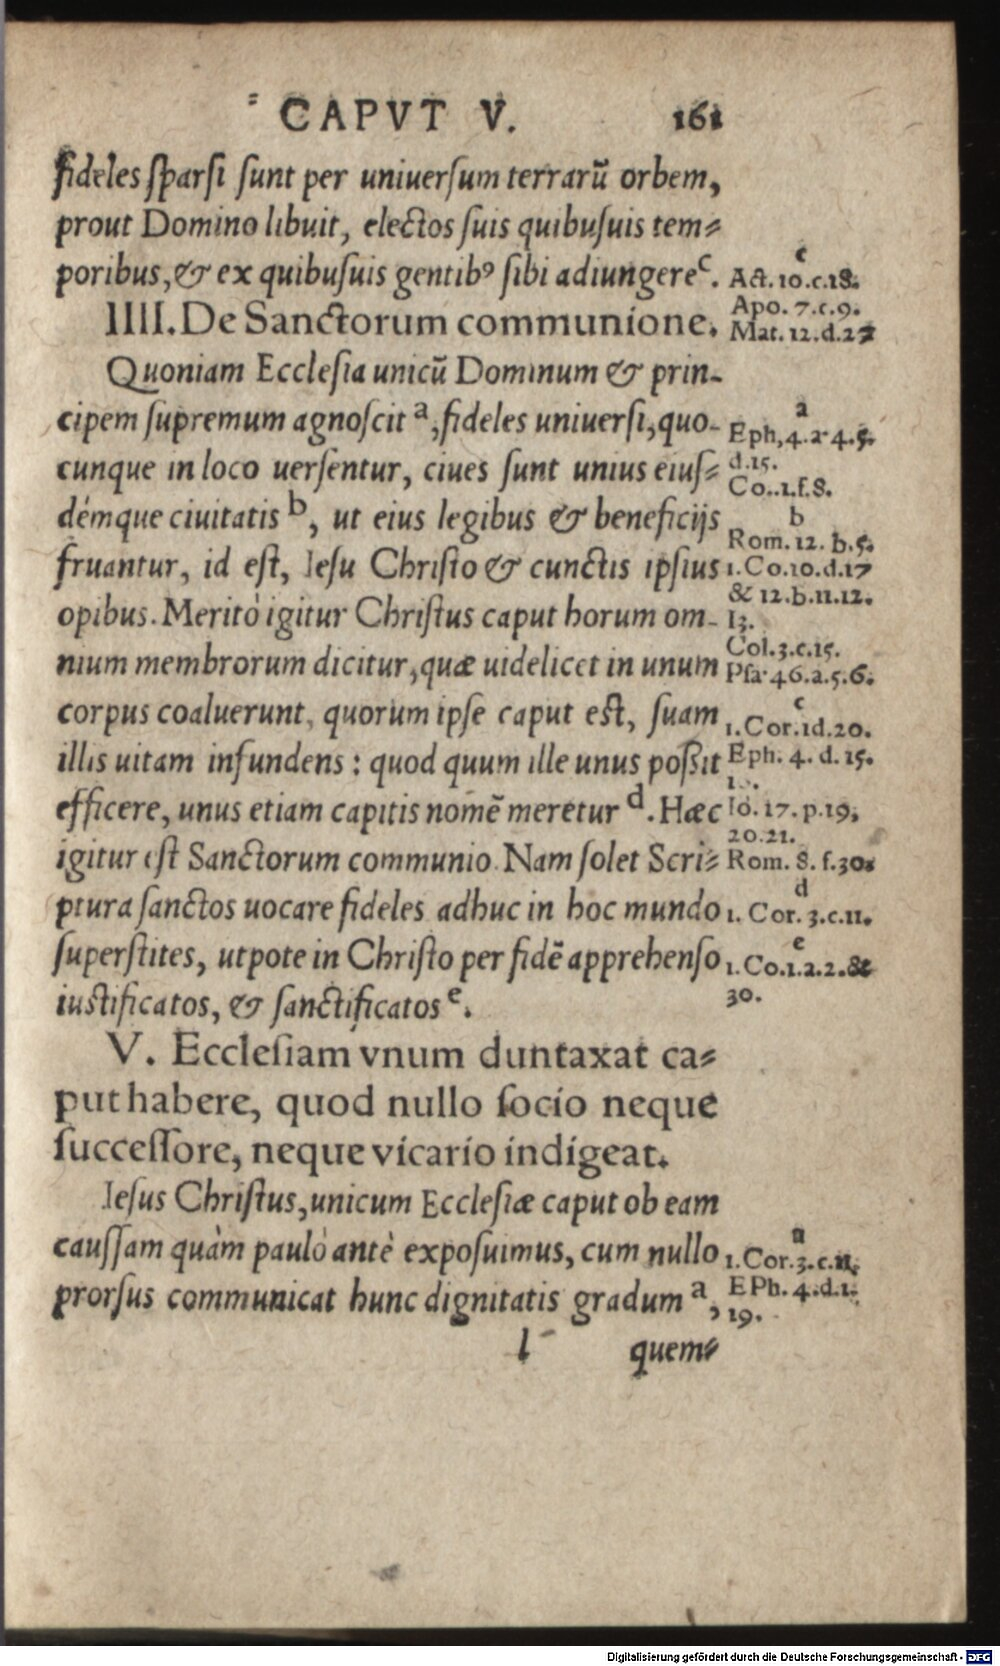 CAPVT V. 161
fideles sparsi sunt per uniuersum terrarũ orbem,
prout Domino libuit, electos suis quibusuis tem⸗
poribus, & ex quibusuis gentibꝰ sibi adiungere c.
IIII. De Sanctorum communione.
Quoniam Ecclesia unicũ Dominum & prin-
cipem supremum agnoscit a, fideles uniuersi, quo-
cunque in loco uersentur, ciues sunt unius eius⸗
démque ciuitatis b, ut eius legibus & beneficijs
fruantur, id est, Iesu Christo & cunctis ipsius
opibus. Meritò igitur Christus caput horum om-
nium membrorum dicitur, quæ uidelicet in unum
corpus coaluerunt, quorum ipse caput est, suam
illis uitam infundens: quod quum ille unus possit
efficere, unus etiam capitis nomẽ meretur d. Hæc
igitur est Sanctorum communio. Nam solet Scri⸗
ptura sanctos uocare fideles adhuc in hoc mundo
superstites, utpote in Christo per fidẽ apprehenso
iustificatos, & sanctificatos e.
V. Ecclesiam vnum duntaxat ca⸗
put habere, quod nullo socio neque
successore, neque vicario indigeat.
Iesus Christus, unicum Ecclesiæ caput ob eam
caussam quàm paulò antè exposuimus, cum nullo
prorsus communicat hunc dignitatis gradum a,
l quem⸗
c
Act. 10.c.18.
Apo. 7.c.9.
Mat. 12.d.27
a
Eph, 4.a 4.5.
d.15.
Co..1.f.8.
b
Rom. 12. b.5.
1. Co.10.d.17
& 12.b.11.12.
13.
Col.3.c.15.
Psa. 46.a.5.6.
c
1. Cor.1d.20.
Eph. 4. d. 15.
Io. 17. p.19.
20.21.
Rom. 8. f.30.
d
1. Cor. 3.c.11.
e
1. Co.1.a.2.&
30.
a
1. Cor.3.c.11.
EPh. 4.d.1.
19.
Digitalisierung gefördert durch die Deutsche Forschungsgemeinschaft - DFG